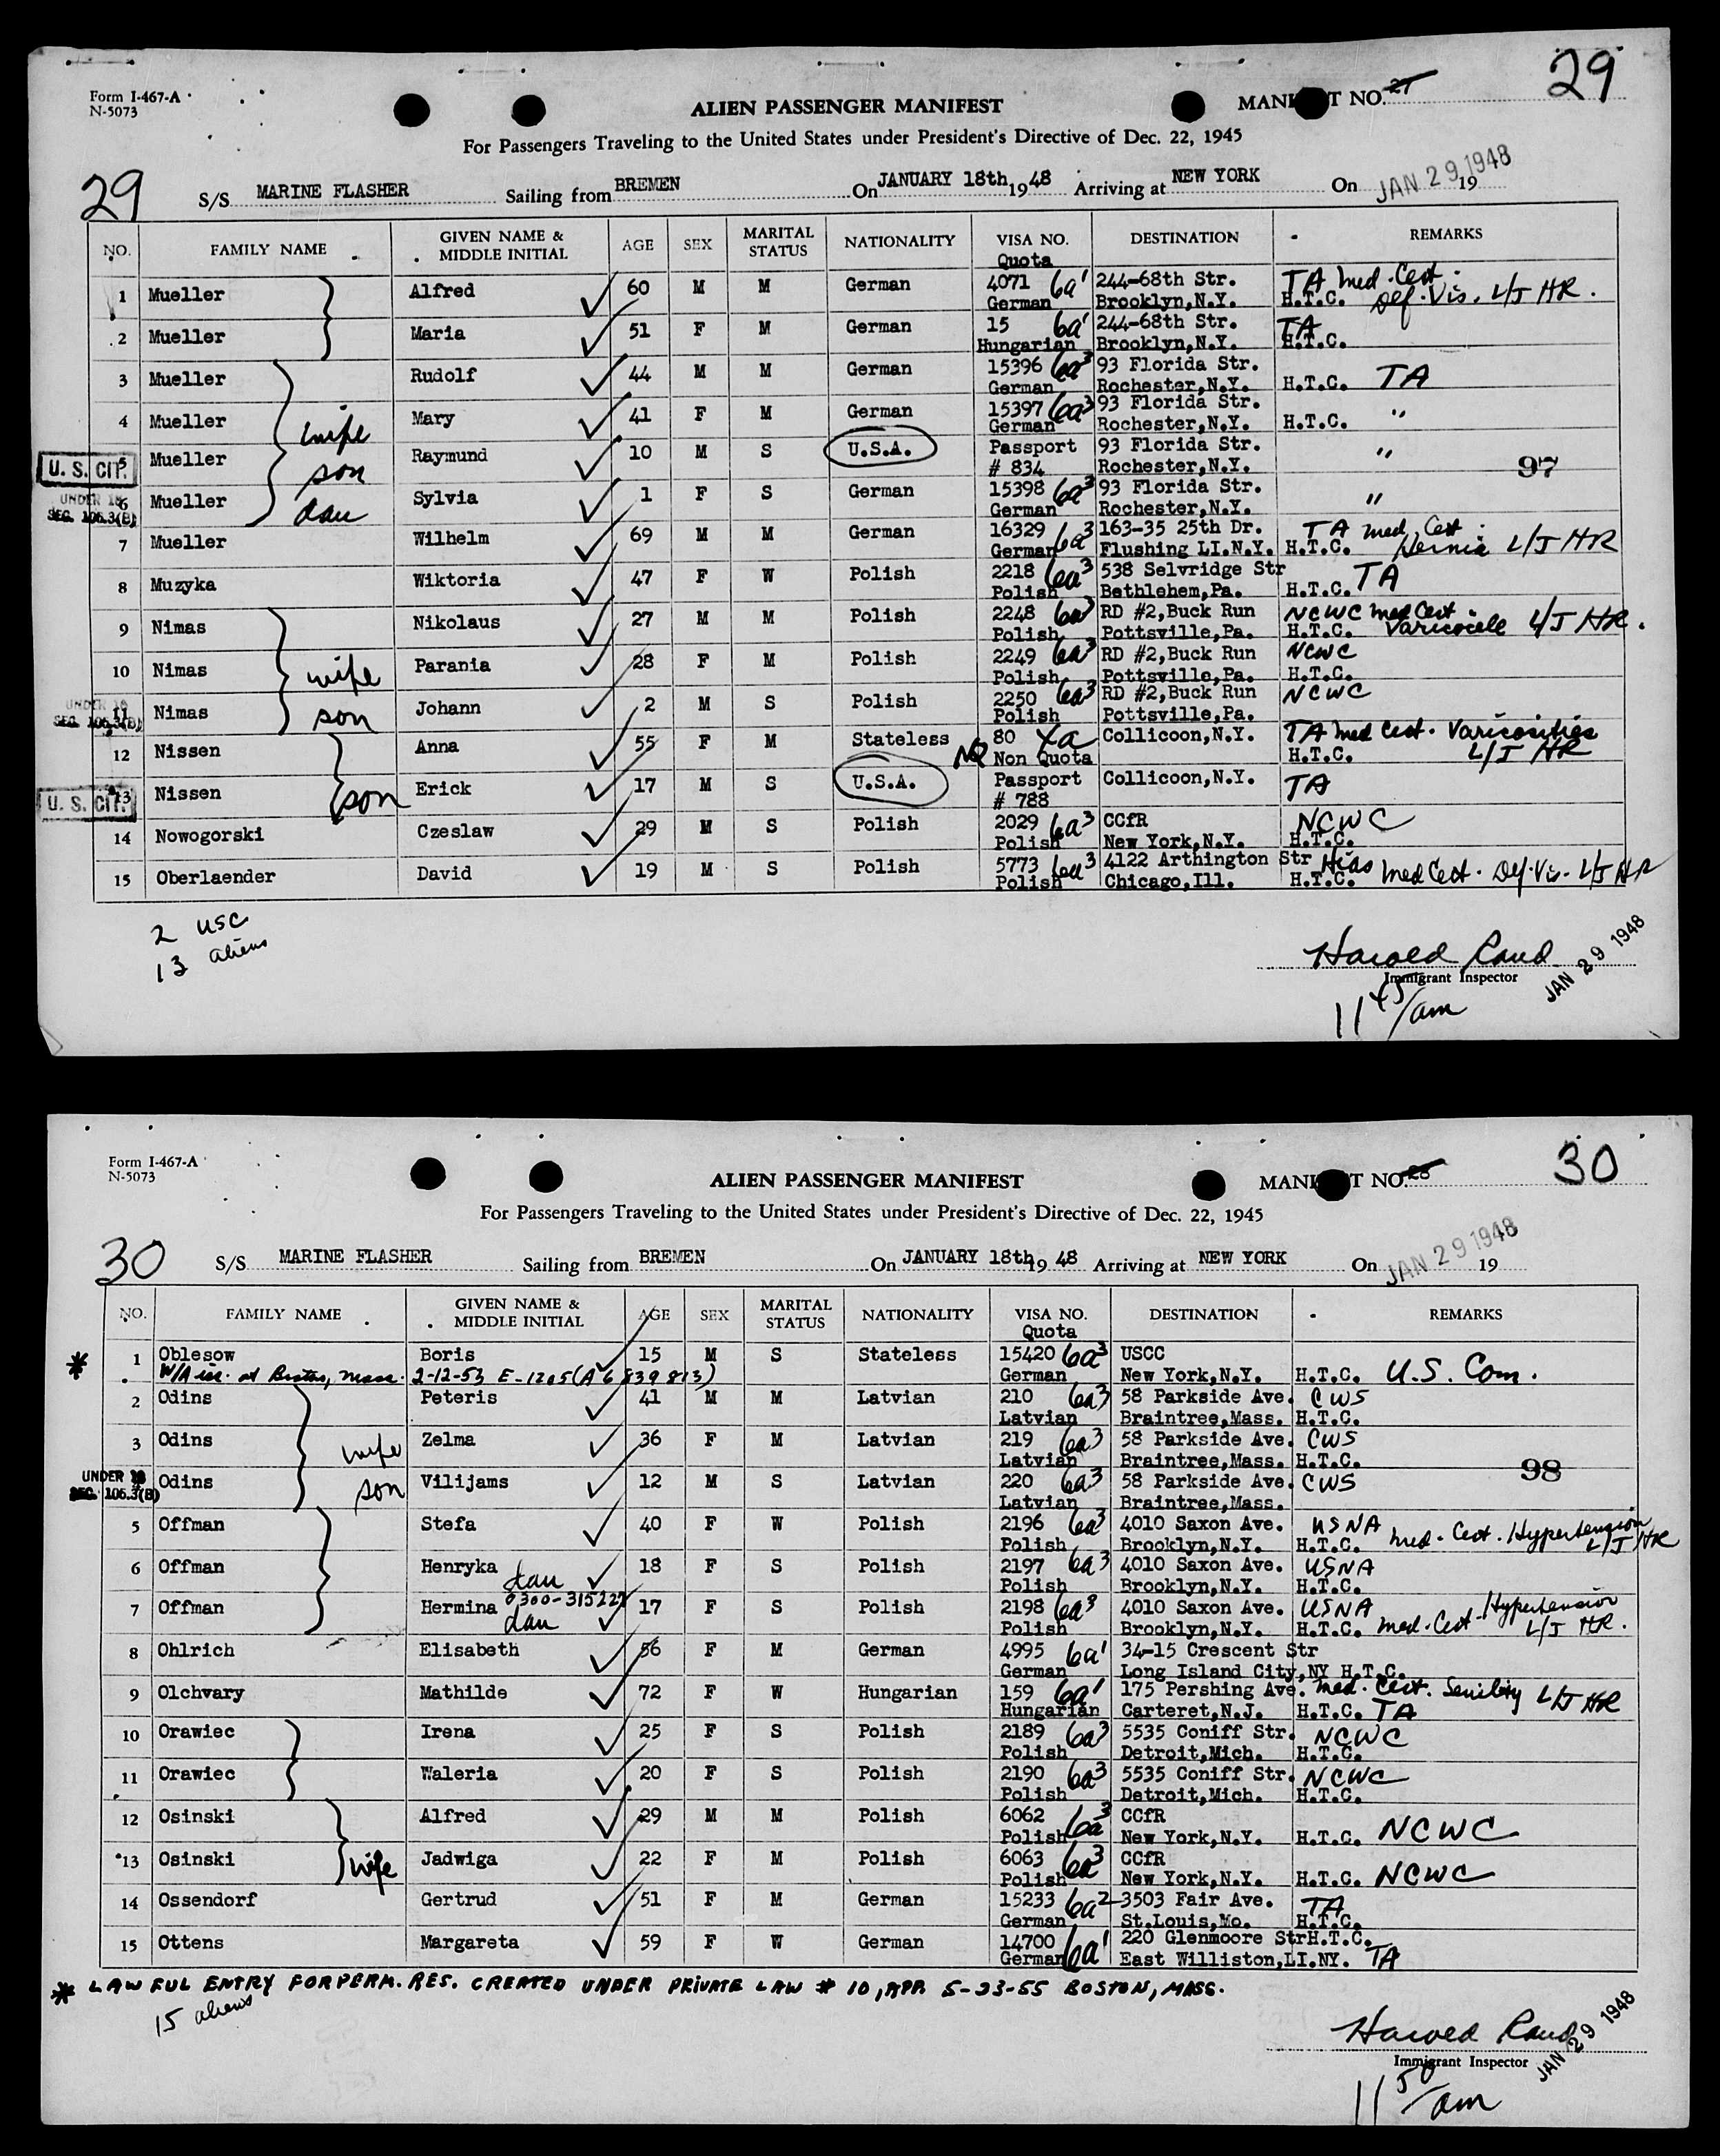 Form I-467-A
N-5073
ALIEN PASSENGER MANIFEST
MANI T NO. 27
29
For Passengers Traveling to the United States under President's Directive of Dec. 22, 1945
29
S/S MARINE FLASHER Sailing from BREMEN On JANUARY 18th 1948 Arriving at NEW YORK On JAN 29 1948 19
NO. FAMILY NAME GIVEN NAME & MIDDLE INITIAL AGE SEX MARITAL STATUS NATIONALITY VISA NO. Quota DESTINATION REMARKS
1 Mueller Alfred 60 M M German 4071 6a1 244-68th Str. TA Med. Cert.
German Brooklyn,N.Y. H.T.C. Def. Vis. L/J HR.
2 Mueller Maria 51 F M German 15 6a1 244-68th Str. TA
Hungarian Brooklyn,N.Y. H.T.C.
3 Mueller Rudolf 44 M M German 15396 6a3 93 Florida Str.
German Rochester,N.Y. H.T.C. TA
4 Mueller wife Mary 41 F M German 15397 6a3 93 Florida Str.
German Rochester,N.Y. H.T.C. "
U. S. CIT. 5 Mueller son Raymund 10 M S U.S.A. Passport 93 Florida Str. "
# 834 Rochester,N.Y. 97
UNDER 16 SEC. 106.3(B) 6 Mueller dau Sylvia 1 F S German 15398 6a3 93 Florida Str. "
German Rochester,N.Y.
7 Mueller Wilhelm 69 M M German 16329 6a3 163-35 25th Dr. TA med. Cert
German Flushing LI.N.Y. H.T.C. Hernia L/J HR
8 Muzyka Wiktoria 47 F W Polish 2218 6a3 538 Selvridge Str
Polish Bethlehem,Pa. H.T.C. TA
9 Nimas Nikolaus 27 M M Polish 2248 6a3 RD #2,Buck Run NCWC med Cert
Polish Pottsville,Pa. H.T.C. Varicocele L/J HR.
10 Nimas wife Parania 28 F M Polish 2249 6a3 RD #2,Buck Run NCWC
Polish Pottsville,Pa. H.T.C.
UNDER 16 SEC. 106.3(B) 11 Nimas son Johann 2 M S Polish 2250 6a3 RD #2,Buck Run NCWC
Polish Pottsville,Pa.
12 Nissen Anna 55 F M Stateless 80 4a Collicoon,N.Y. TA Med Cert. Varicosities
NQ Non Quota H.T.C. L/J HR
U. S. CIT. 13 Nissen son Erick 17 M S U.S.A. Passport Collicoon,N.Y. TA
# 788
14 Nowogorski Czeslaw 29 M S Polish 2029 6a3 CCfR NCWC
Polish New York,N.Y. H.T.C.
15 Oberlaender David 19 M S Polish 5773 6a3 4122 Arthington Str Hias
Polish Chicago,Ill. H.T.C. Med Cert. Def. Vis. L/J HR
2 USC
13 aliens
Harold Rand
Immigrant Inspector
JAN 29 1948
11 45/am
Form I-467-A
N-5073
ALIEN PASSENGER MANIFEST
MANI T NO. 28
30
For Passengers Traveling to the United States under President's Directive of Dec. 22, 1945
30
S/S MARINE FLASHER Sailing from BREMEN On JANUARY 18th 19 48 Arriving at NEW YORK On JAN 29 1948 19
NO. FAMILY NAME GIVEN NAME & MIDDLE INITIAL AGE SEX MARITAL STATUS NATIONALITY VISA NO. Quota DESTINATION REMARKS
* 1 Oblesow Boris 15 M S Stateless 15420 6a3 USCC
W/A iss. at Boston, Mass. 2-12-53 E-1205 (A6 839 813) German New York,N.Y. H.T.C. U.S. Com.
2 Odins Peteris 41 M M Latvian 210 6a3 58 Parkside Ave. CWS
Latvian Braintree,Mass. H.T.C.
3 Odins wife Zelma 36 F M Latvian 219 6a3 58 Parkside Ave. CWS
Latvian Braintree,Mass. H.T.C. 98
UNDER 16 SEC. 106.3(B) Odins son Vilijams 12 M S Latvian 220 6a3 58 Parkside Ave. CWS
Latvian Braintree,Mass.
5 Offman Stefa 40 F W Polish 2196 6a3 4010 Saxon Ave. USNA
Polish Brooklyn,N.Y. H.T.C. Med. Cert. Hypertension L/J HR
6 Offman Henryka dau 18 F S Polish 2197 6a3 4010 Saxon Ave. USNA
Polish Brooklyn,N.Y. H.T.C.
7 Offman Hermina 0300-315227 dau 17 F S Polish 2198 6a3 4010 Saxon Ave. USNA Hypertension
Polish Brooklyn,N.Y. H.T.C. Med. Cert L/J HR.
8 Ohlrich Elisabeth 56 F M German 4995 6a1 34-15 Crescent Str
German Long Island City,NY H.T.C.
9 Olchvary Mathilde 72 F W Hungarian 159 6a1 175 Pershing Ave. Med. Cert. Senility L/J HR
Hungarian Carteret,N.J. H.T.C. TA
10 Orawiec Irena 25 F S Polish 2189 6a3 5535 Coniff Str. NCWC
Polish Detroit,Mich. H.T.C.
11 Orawiec Waleria 20 F S Polish 2190 6a3 5535 Coniff Str. NCWC
Polish Detroit,Mich. H.T.C.
12 Osinski Alfred 29 M M Polish 6062 6a3 CCfR
Polish New York,N.Y. H.T.C. NCWC
13 Osinski wife Jadwiga 22 F M Polish 6063 6a3 CCfR
Polish New York,N.Y. H.T.C. NCWC
14 Ossendorf Gertrud 51 F M German 15233 6a2 3503 Fair Ave. TA
German St.Louis,Mo. H.T.C.
15 Ottens Margareta 59 F W German 14700 6a1 220 Glenmoore Str H.T.C.
German East Williston,LI.NY. TA
* LAWFUL ENTRY FOR PERM. RES. CREATED UNDER PRIVATE LAW # 10, APR 5-23-55 BOSTON, MASS.
15 aliens
Harold Rand
Immigrant Inspector
JAN 29 1948
11 50/am